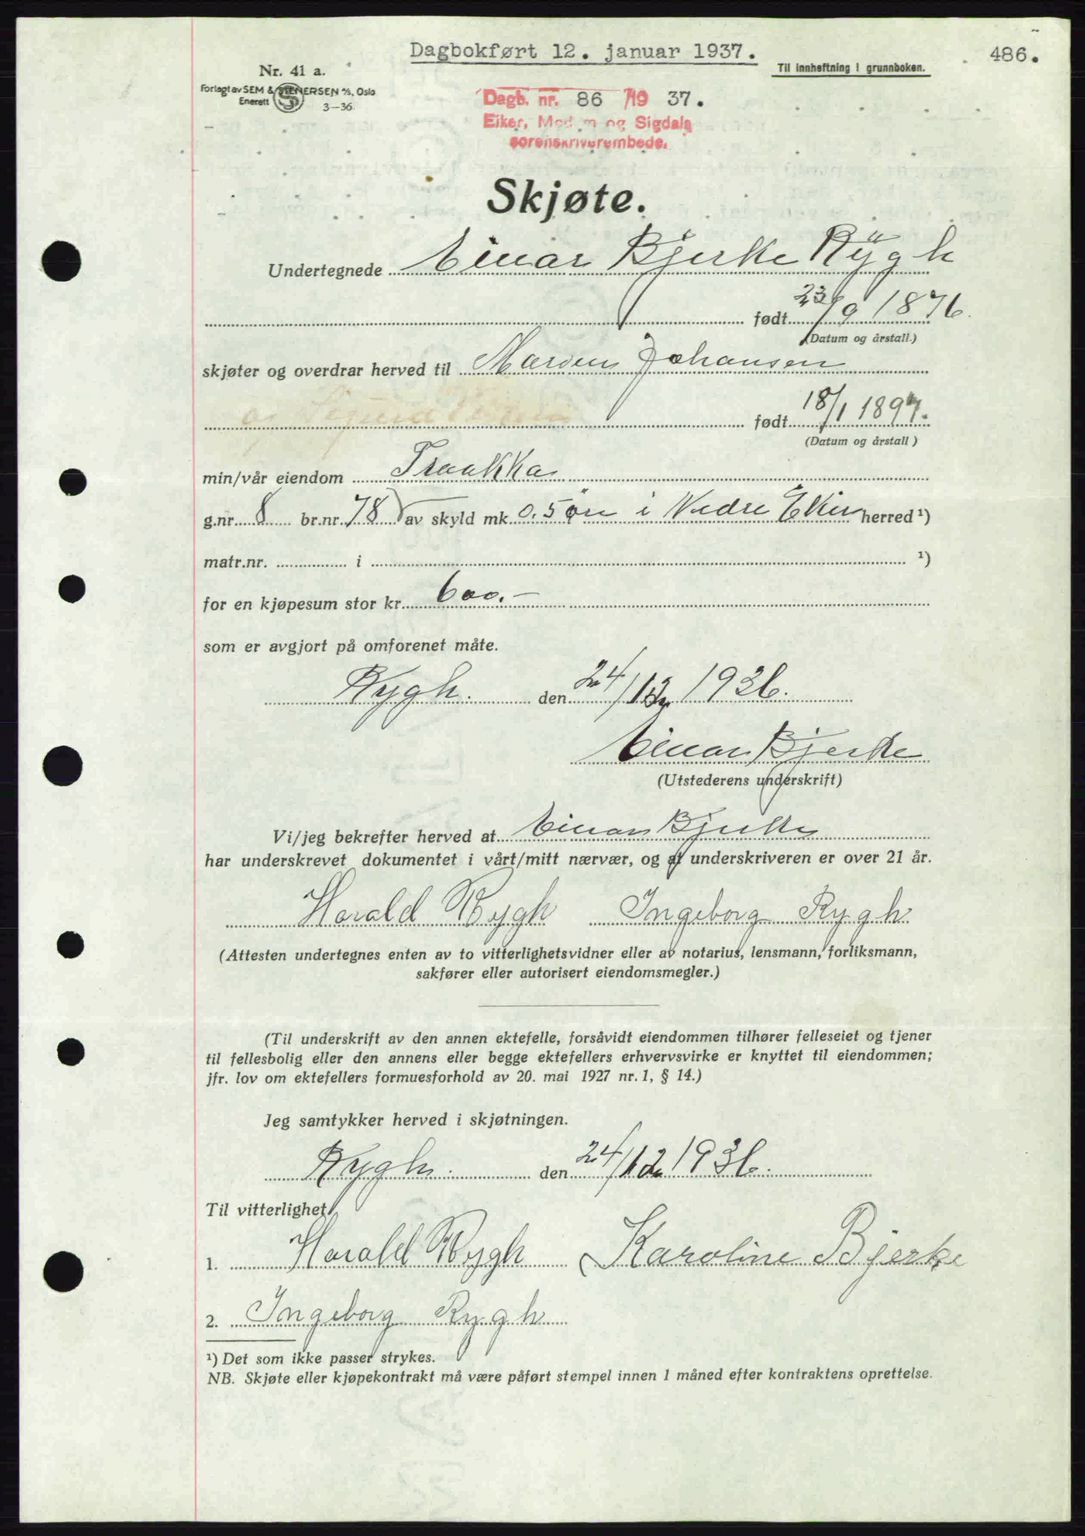 Dagbokført 12. januar 1937.
486.
Til innheftning i grunnboken.
Nr. 41 a.
Forlagt av SEM & STENERSEN A/S, Oslo
Enerett 3-36
Dagb. nr. 86 /19 37.
Eiker, Modum og Sigdals
sorenskriverembede.
Skjøte.
Undertegnede Einar Bjerke Rygh
født 23/9 1876.
(Datum og årstall.)
skjøter og overdrar herved til Johansen
født 18/1 1897.
(Datum og årstall)
min/vår eiendom Traakka
g.nr. 8 br.nr. 78 av skyld mk. 0.5 øre i Nedre Eiker herred ¹)
matr.nr. i ¹)
for en kjøpesum stor kr. 600.-
som er avgjort på omforenet måte.
Rygh. den 24/12 1936.
Einar Bjerke
(Utstederens underskrift)
Vi/jeg bekrefter herved at Einar Bjerke
har underskrevet dokumentet i vårt/mitt nærvær, og at underskriveren er over 21 år.
Harald Rygh Ingeborg Rygh
(Attesten undertegnes enten av to vitterlighetsvidner eller av notarius, lensmann, forliksmann,
sakfører eller autorisert eiendomsmegler.)
(Til underskrift av den annen ektefelle, forsåvidt eiendommen tilhører felleseiet og tjener
til fellesbolig eller den annens eller begge ektefellers erhvervsvirke er knyttet til eiendommen;
jfr. lov om ektefellers formuesforhold av 20. mai 1927 nr. 1, § 14.)
Jeg samtykker herved i skjøtningen.
Rygh. den 24/12 1936.
Til vitterlighet
1. Harald Rygh Karoline Bjerke
2. Ingeborg Rygh
¹) Det som ikke passer strykes.
NB. Skjøte eller kjøpekontrakt må være påført stempel innen 1 måned efter kontraktens oprettelse.